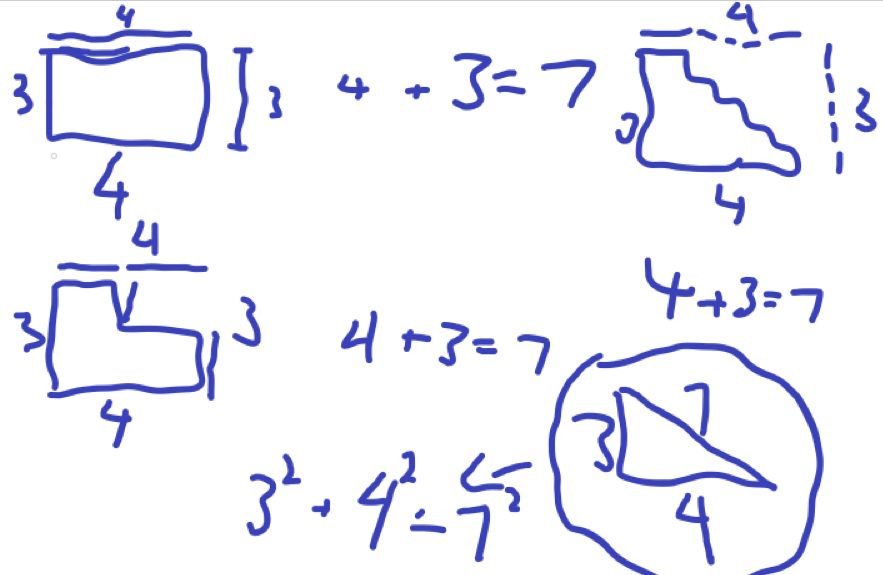 4
3
3
4
4 + 3 = 7
4
3
3
4
4
3
3
4
4 + 3 = 7
4 + 3 = 7
3
7
4
3² + 4² = 7²